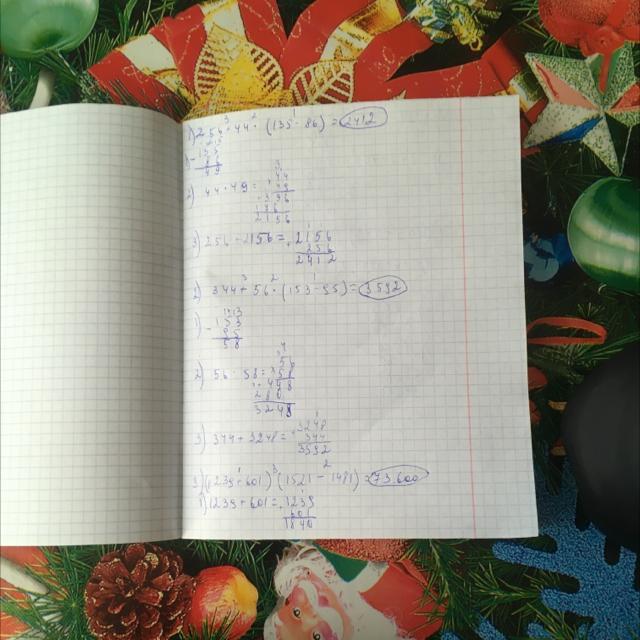 1) 256 + 44 · (135 - 86) = 2412
2) 44 · 49 =
2156
3) 256 + 2156 = 2156
256
2412
2) 344 + 56 · (153 - 95) = 3592
1) - 153
95
58
2) 56 · 58 = 56
58
448
280
3248
3) 344 + 3248 = 3248
344
3592
3) (1239 + 601) · (1521 - 1481) = 73.600
1) 1239 + 601 = 1239
601
1840